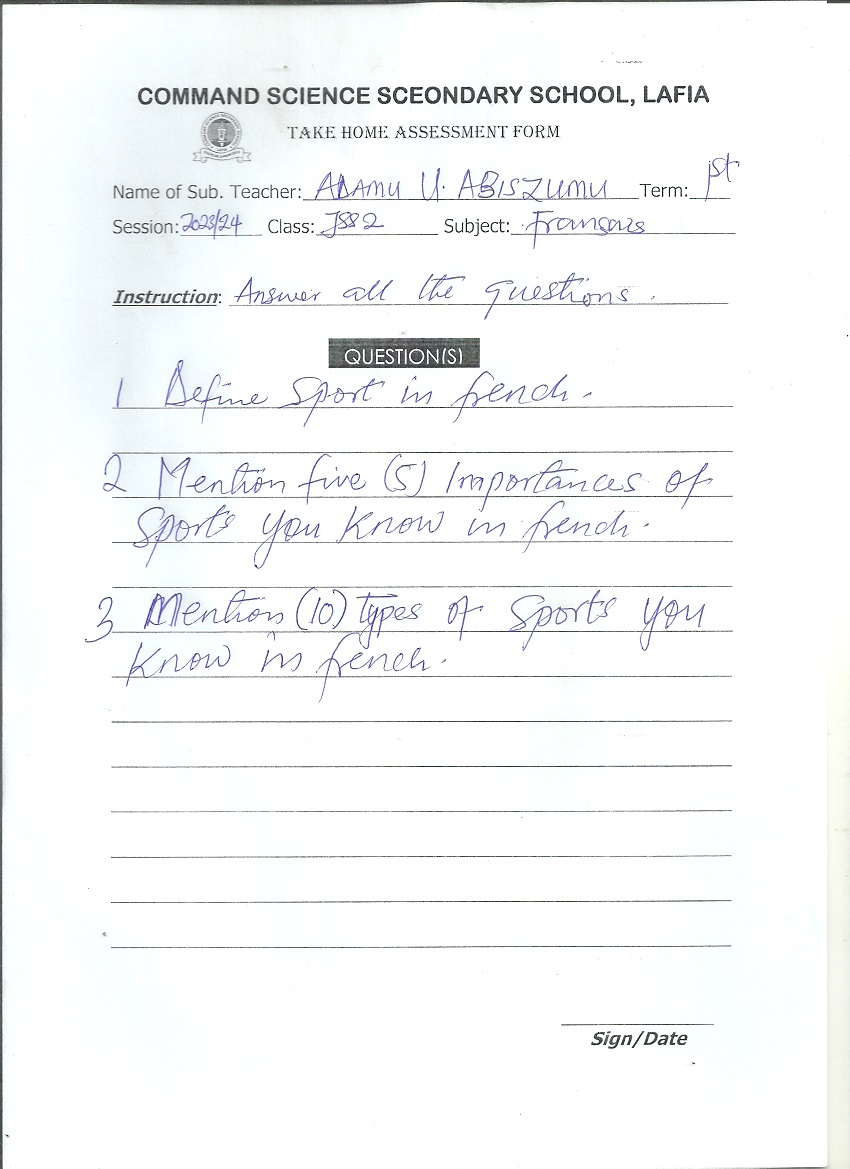 COMMAND SCIENCE SCEONDARY SCHOOL, LAFIA
TAKE HOME ASSESSMENT FORM
Name of Sub. Teacher: ADAMU U. ABISZUMU Term: 1st
Session: 2023/24 Class: JSS2 Subject: Fransais
Instruction: Answer all the questions.
QUESTION(S)
1 Define Sport in french.
2 Mention five (5) Importances of
Sports you Know in french.
3 Mention (10) types of Sports you
Know in french.
Sign/Date